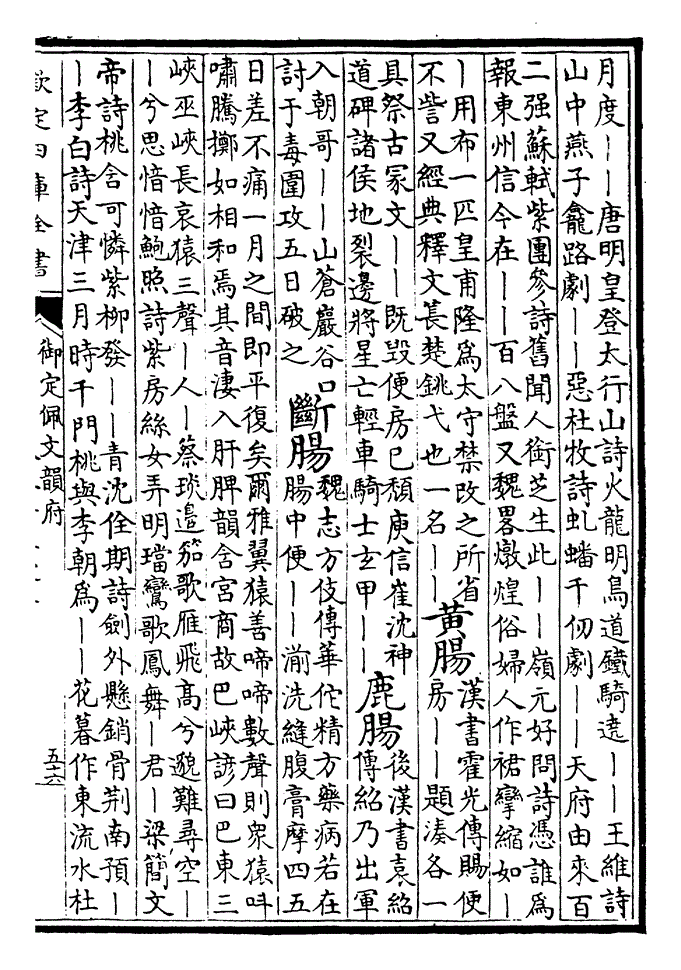 月度――唐明皇登太行山詩火龍明鳥道鐵騎遶――王維詩
山中燕子龕路劇――惡杜牧詩虬蟠千仞劇――天府由來百
二强蘇軾紫團參詩舊聞人銜芝生此――嶺元好問詩憑誰爲
報東州信今在――百八盤又魏畧燉煌俗婦人作裙攣縮如―
―用布一匹皇甫隆爲太守禁改之所省
不訾又經典釋文萇楚銚弋也一名――
黃腸
漢書霍光傳賜便
房――題湊各一
具祭古冢文――既毁便房已頹庾信崔沈神
道碑諸侯地裂邊將星亡輕車騎士玄甲――
鹿腸
後漢書袁紹
傳紹乃出軍
入朝哥――山蒼巖谷口
討于毒圍攻五日破之
斷腸
魏志方伎傳華佗精方藥病若在
腸中便――湔洗縫腹膏摩四五
日差不痛一月之間即平復矣爾雅翼猿善啼啼數聲則衆猿叫
嘯騰擲如相和焉其音淒入肝脾韻含宮商故巴峽諺曰巴東三
峽巫峽長哀猿三聲―人―蔡琰邊笳歌雁飛高兮邈難尋空―
―兮思愔愔鮑照詩紫房綵女弄明璫鸞歌鳳舞―君―梁簡文
帝詩桃含可憐紫柳發――青沈佺期詩劍外懸銷骨荆南預―
―李白詩天津三月時千門桃與李朝爲――花暮作東流水杜
欽定四庫全書
御定佩文韻府
五六